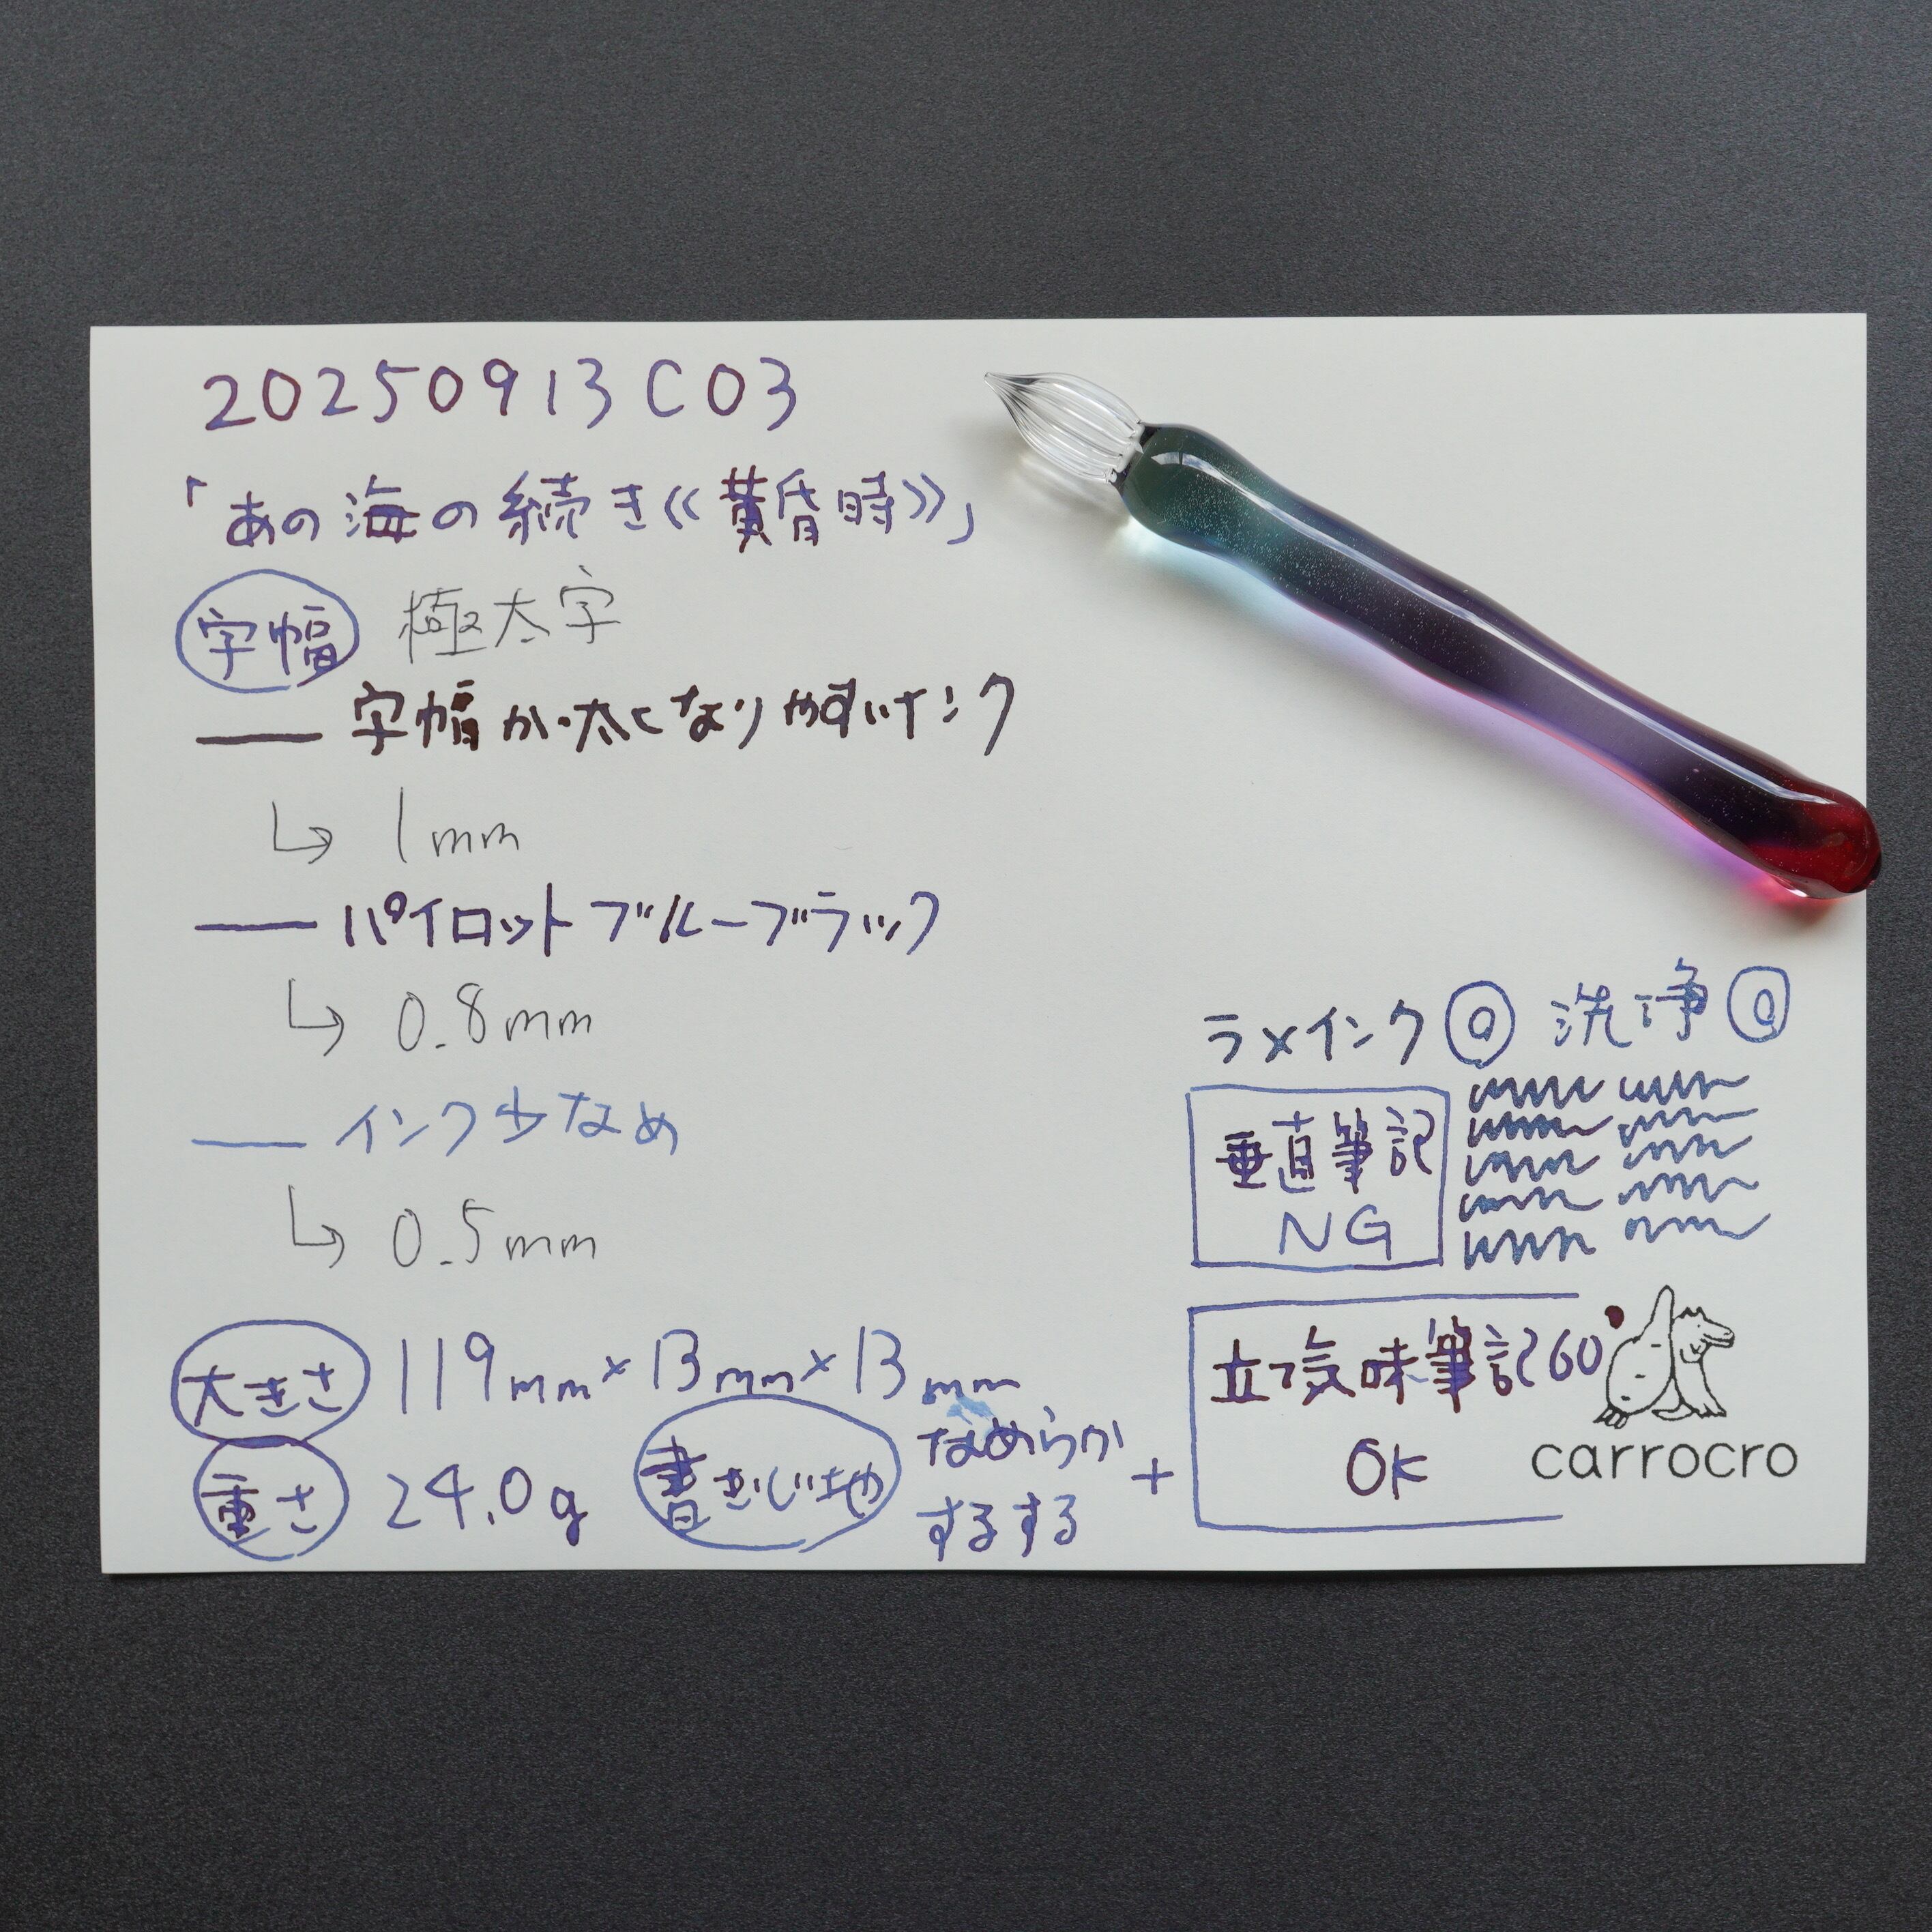 20250913C03
「あの海の続き《黄昏時》」
字幅 極太字
— 字幅が太くなりやすいインク
↳ 1mm
— パイロットブルーブラック
↳ 0.8mm
— インク少なめ
↳ 0.5mm
大きさ 119mm×13mm×13mm
重さ 24.0g 書き心地 なめらか
するする
+
ラメインク◎ 洗浄◎
垂直筆記
NG
立つ気味筆記60°
OK
carrocro